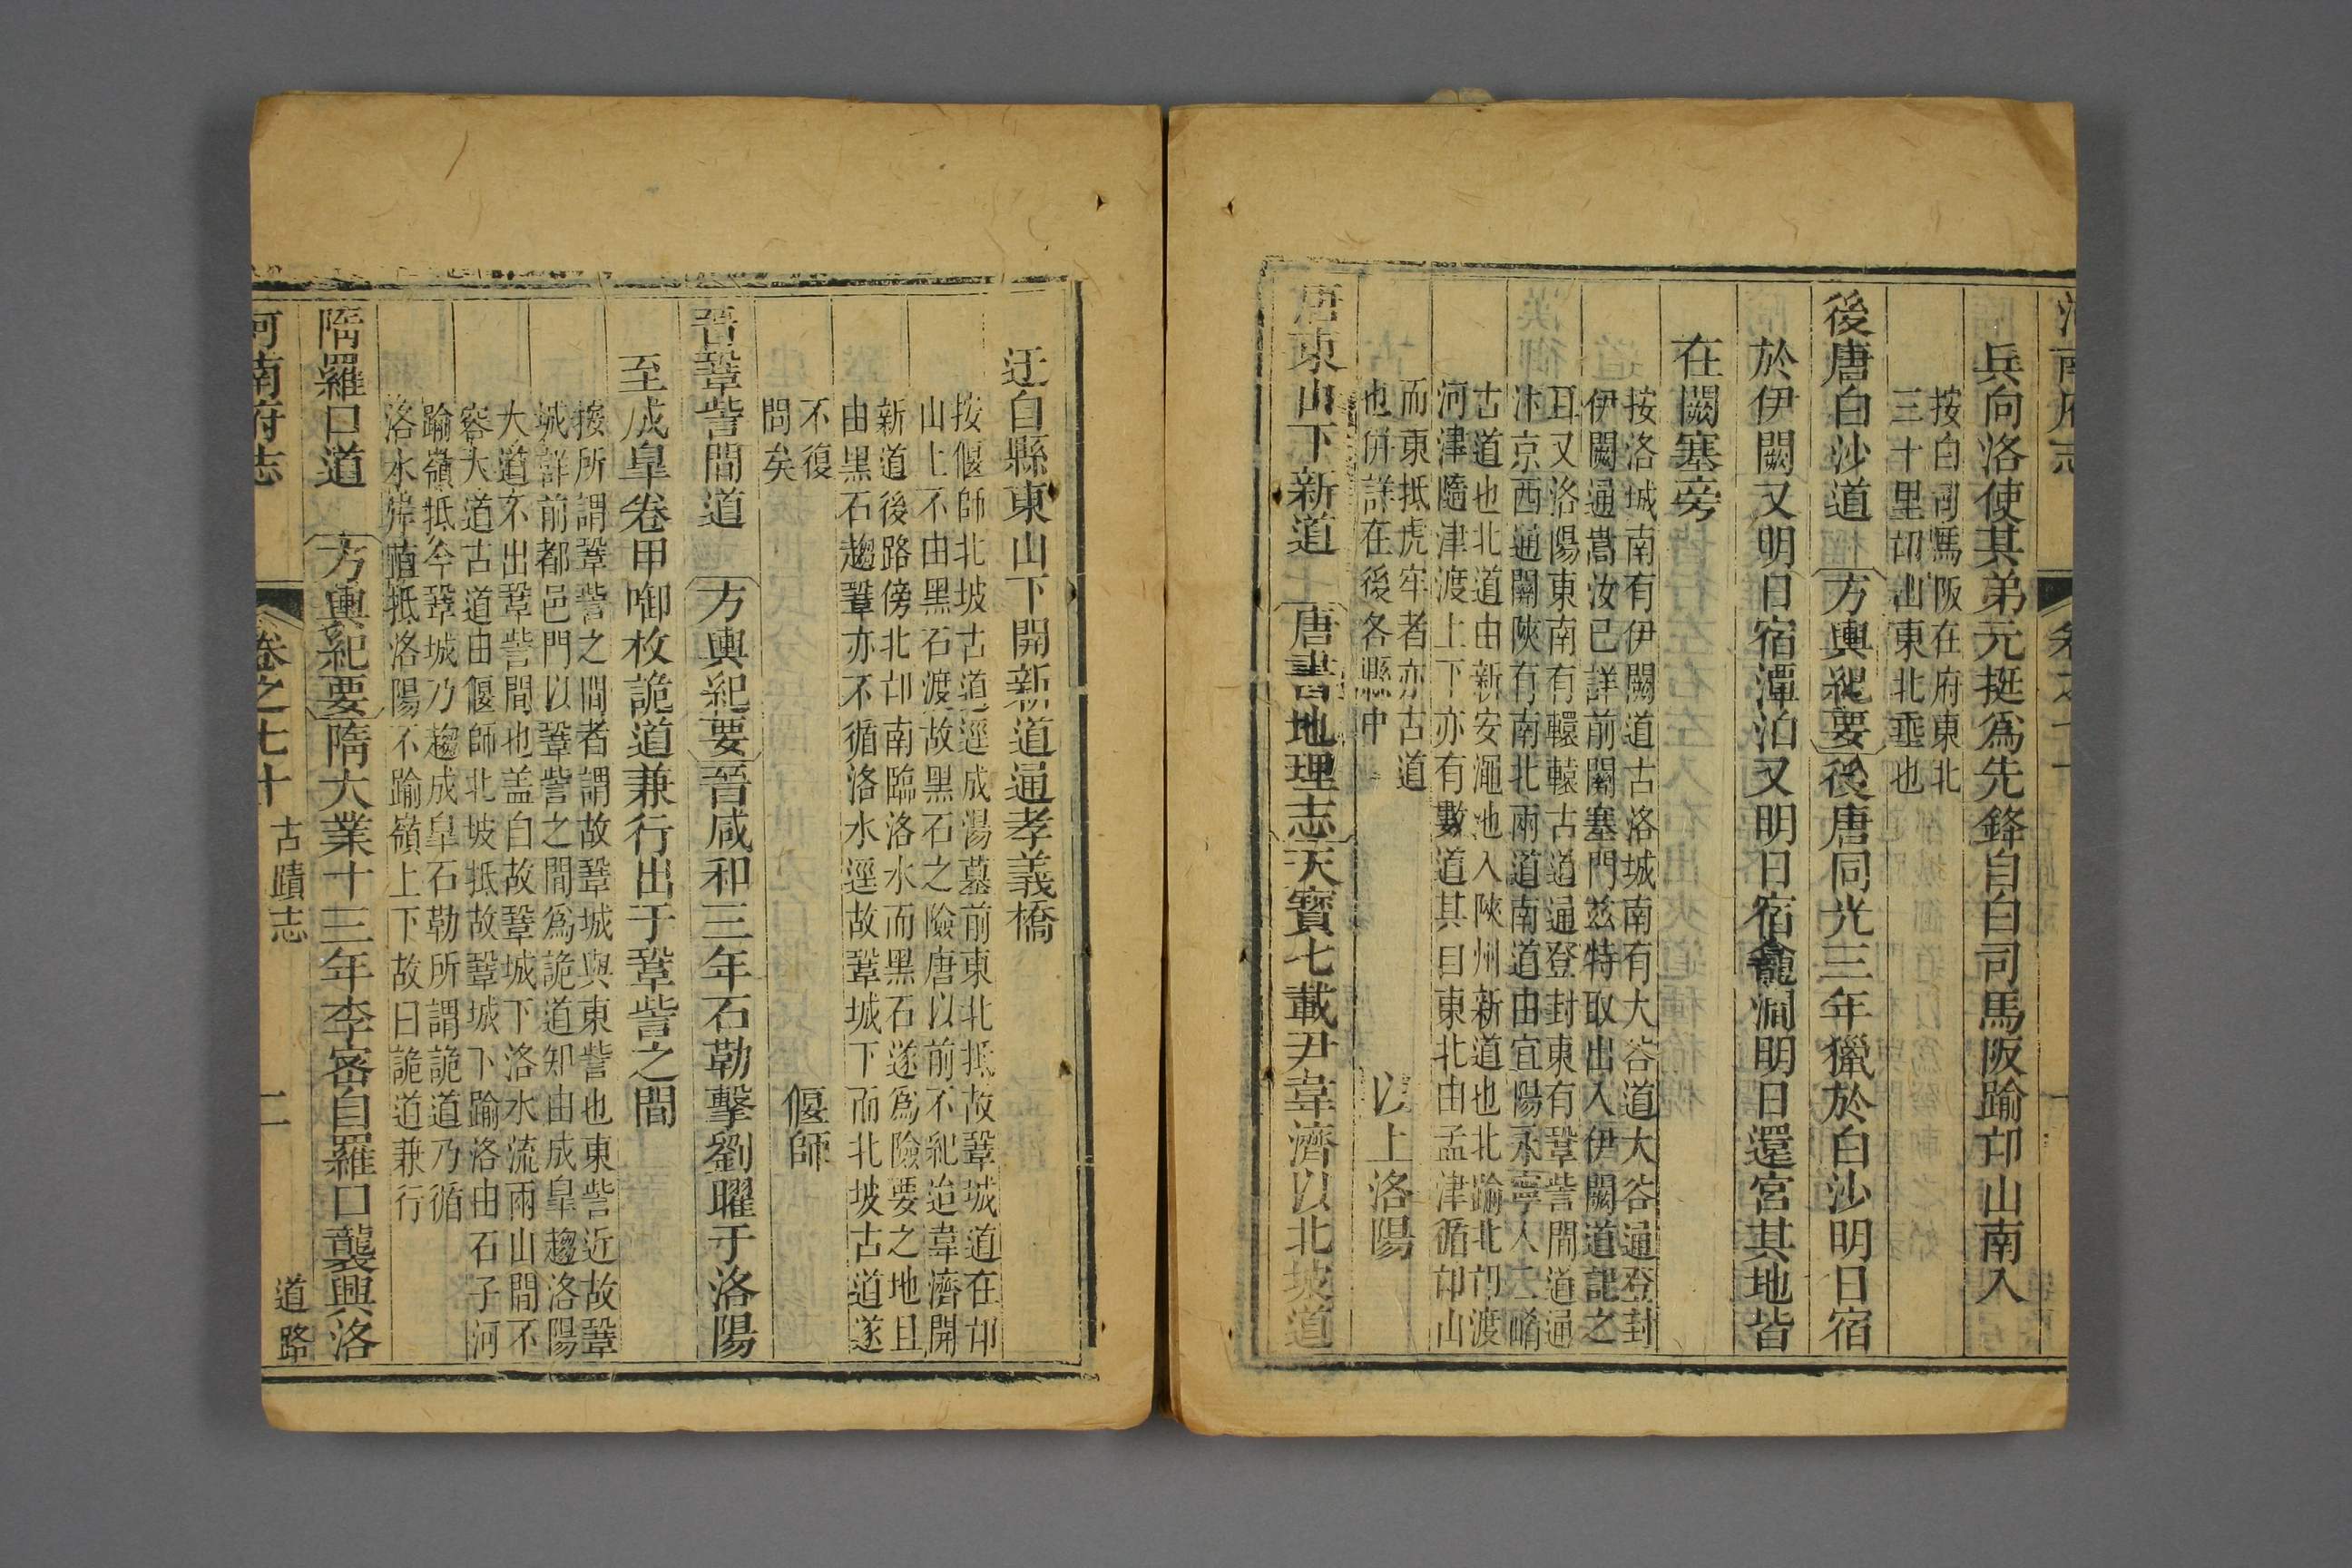 兵向洛使其弟元挺爲先鋒自白司馬阪踰邙山南入
按白司馬阪在府東北
三十里邙山東北垂也
後唐白沙道　方輿紀要後唐同光三年獵於白沙明日宿
於伊闕又明日宿潭泊又明日宿龕澗明日還宮其地皆
在闕塞旁
按洛城南有伊闕道古洛城南有大谷道大谷通登封
伊闕通嵩汝已詳前闕塞門茲特取出入伊闕道記之
耳又洛陽東南有轘轅古道通登封東有鞏訾間道通
汴京西通關陝有南北兩道南道由宜陽永寧人二崤
古道也北道由新安澠池入陝州新道也北踰北邙渡
河津隨津渡上下亦有數道其曰東北由孟津循邙山
而東抵虎牢者亦古道
也併詳在後各縣中
以上洛陽
唐東山下新道　唐書地理志天寶七載尹韋濟以北坡道
迂自縣東山下開新道通孝義橋
按偃師北坡古道逕成湯墓前東北抵故鞏城道在邙
山上不由黑石渡故黑石之險唐以前不紀迨韋濟開
新道後路傍北邙南臨洛水而黑石遂爲險要之地且
由黑石趨鞏亦不循洛水逕故鞏城下而北坡古道遂
不復
問矣
偃師
晉鞏訾間道　方輿紀要晉咸和三年石勒擊劉曜于洛陽
至成皐卷甲啣枚詭道兼行出于鞏訾之間
按所謂鞏訾之間者謂故鞏城與東訾也東訾近故鞏
城詳前都邑門以鞏訾之間爲詭道知由成皐趨洛陽
大道不出鞏訾間也盖自故鞏城下洛水流兩山間不
容大道古道由偃師北坡抵故鞏城下踰洛由石子河
踰嶺抵今鞏城乃趨成皐石勒所謂詭道乃循
洛水岸直抵洛陽不踰嶺上下故曰詭道兼行
隋羅口道　方輿紀要隋大業十三年李密自羅口襲興洛
河南府志　卷之七十　古蹟志　道路　二